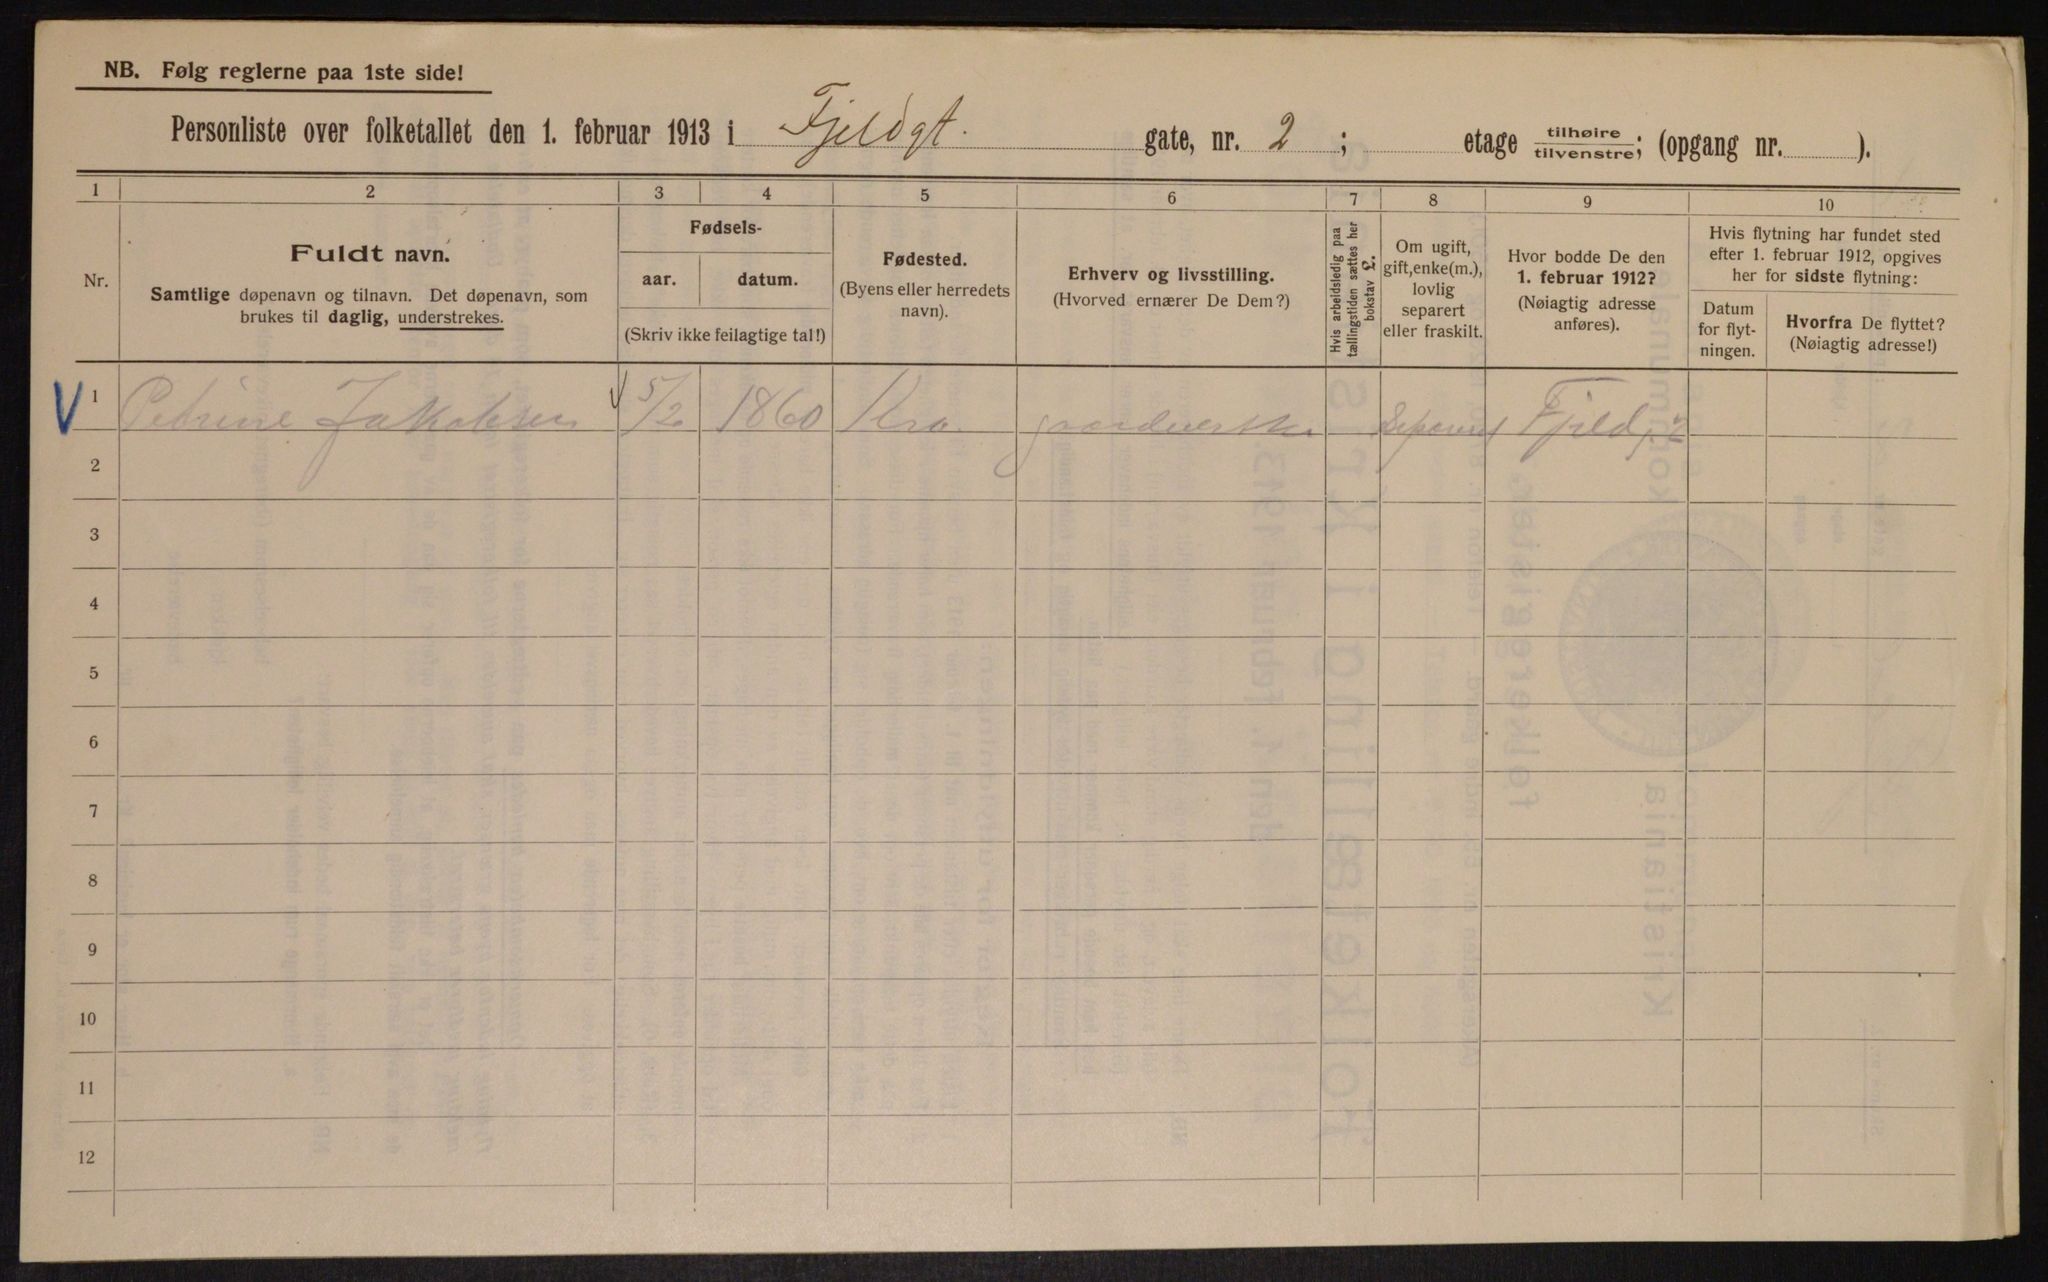 NB. Følg reglerne paa 1ste side!
Personliste over folketallet den 1. februar 1913 i Fjeldgt. gate, nr. 2 ; etage tilhøire/tilvenstre; (opgang nr. ).
1 2 3 4 5 6 7 8 9 10
Nr.
Fuldt navn.
Samtlige døpenavn og tilnavn. Det døpenavn, som
brukes til daglig, understrekes.
Fødsels-
aar. datum.
(Skriv ikke feilagtige tal!)
Fødested.
(Byens eller herredets
navn).
Erhverv og livsstilling.
(Hvorved ernærer De Dem?)
Hvis arbeidsledig paa
tællingstiden sættes her
bokstav L.
Om ugift,
gift, enke(m.),
lovlig
separert
eller fraskilt.
Hvor bodde De den
1. februar 1912?
(Nøiagtig adresse
anføres).
Hvis flytning har fundet sted
efter 1. februar 1912, opgives
her for sidste flytning:
Datum
for flyt-
ningen.
Hvorfra De flyttet?
(Nøiagtig adresse!)
V 1 Petrine Jakobsen 5/2 1860 Kra. Separert Fjeldg 2
2
3
4
5
6
7
8
9
10
11
12